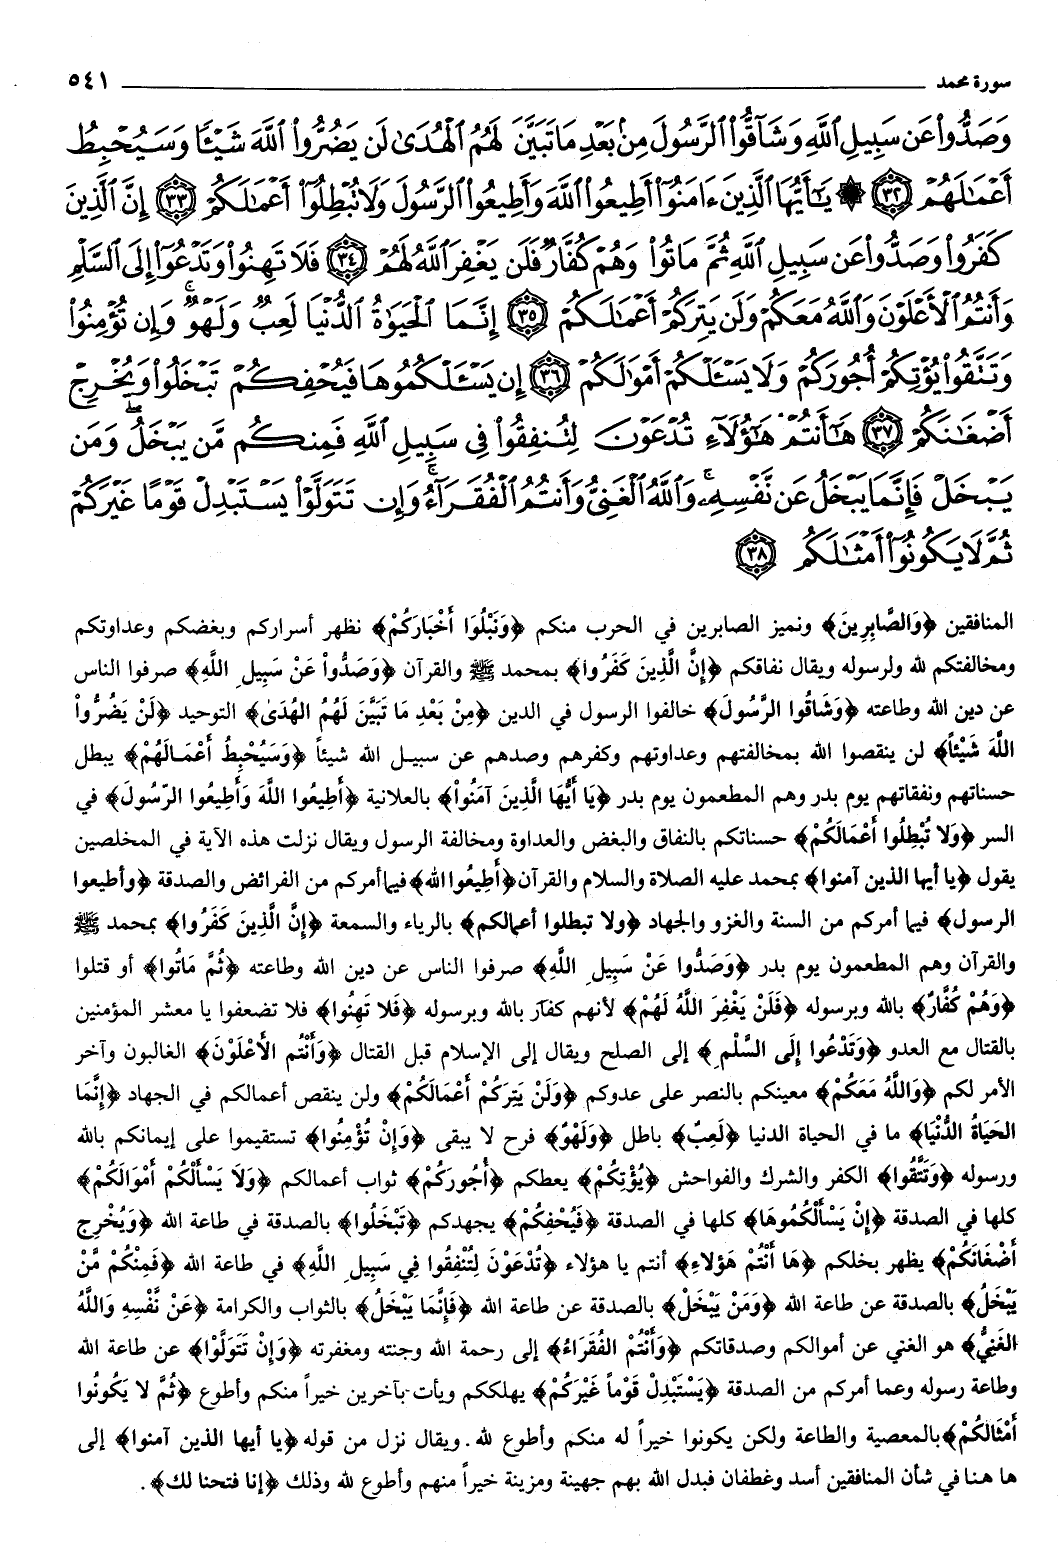 سورة محمد ٥٤١
وَصَدُّوا۟ عَن سَبِيلِ ٱللَّهِ وَشَآقُّوا۟ ٱلرَّسُولَ مِنۢ بَعْدِ مَا تَبَيَّنَ لَهُمُ ٱلْهُدَىٰ لَن يَضُرُّوا۟ ٱللَّهَ شَيْـًٔا وَسَيُحْبِطُ
أَعْمَـٰلَهُمْ ٣٢ ۞ يَـٰٓأَيُّهَا ٱلَّذِينَ ءَامَنُوٓا۟ أَطِيعُوا۟ ٱللَّهَ وَأَطِيعُوا۟ ٱلرَّسُولَ وَلَا تُبْطِلُوٓا۟ أَعْمَـٰلَكُمْ ٣٣ إِنَّ ٱلَّذِينَ
كَفَرُوا۟ وَصَدُّوا۟ عَن سَبِيلِ ٱللَّهِ ثُمَّ مَاتُوا۟ وَهُمْ كُفَّارٌ فَلَن يَغْفِرَ ٱللَّهُ لَهُمْ ٣٤ فَلَا تَهِنُوا۟ وَتَدْعُوٓا۟ إِلَى ٱلسَّلْمِ
وَأَنتُمُ ٱلْأَعْلَوْنَ وَٱللَّهُ مَعَكُمْ وَلَن يَتِرَكُمْ أَعْمَـٰلَكُمْ ٣٥ إِنَّمَا ٱلْحَيَوٰةُ ٱلدُّنْيَا لَعِبٌ وَلَهْوٌ ۚ وَإِن تُؤْمِنُوا۟
وَتَتَّقُوا۟ يُؤْتِكُمْ أُجُورَكُمْ وَلَا يَسْـَٔلْكُمْ أَمْوَٰلَكُمْ ٣٦ إِن يَسْـَٔلْكُمُوهَا فَيُحْفِكُمْ تَبْخَلُوا۟ وَيُخْرِجْ
أَضْغَـٰنَكُمْ ٣٧ هَـٰٓأَنتُمْ هَـٰٓؤُلَآءِ تُدْعَوْنَ لِتُنفِقُوا۟ فِى سَبِيلِ ٱللَّهِ فَمِنكُم مَّن يَبْخَلُ ۖ وَمَن
يَبْخَلْ فَإِنَّمَا يَبْخَلُ عَن نَّفْسِهِۦ ۚ وَٱللَّهُ ٱلْغَنِىُّ وَأَنتُمُ ٱلْفُقَرَآءُ ۚ وَإِن تَتَوَلَّوْا۟ يَسْتَبْدِلْ قَوْمًا غَيْرَكُمْ
ثُمَّ لَا يَكُونُوٓا۟ أَمْثَـٰلَكُم ٣٨
المنافقين ﴿وَالصَّابِرِينَ﴾ ونميز الصابرين في الحرب منكم ﴿وَنَبْلُوَا أَخْبَارَكُمْ﴾ نظهر أسراركم وبغضكم وعداوتكم
ومخالفتكم لله ولرسوله ويقال نفاقكم ﴿إِنَّ الَّذِينَ كَفَرُوا﴾ بمحمد ﷺ والقرآن ﴿وَصَدُّوا عَنْ سَبِيلِ اللَّهِ﴾ صرفوا الناس
عن دين الله وطاعته ﴿وَشَاقُوا الرَّسُولَ﴾ خالفوا الرسول في الدين ﴿مِنْ بَعْدِ مَا تَبَيَّنَ لَهُمُ الهُدَىٰ﴾ التوحيد ﴿لَنْ يَضُرُّواْ
اللَّهَ شَيْئاً﴾ لن ينقصوا الله بمخالفتهم وعداوتهم وكفرهم وصدهم عن سبيل الله شيئاً ﴿وَسَيُحْبِطُ أَعْمَالَهُمْ﴾ يبطل
حسناتهم ونفقاتهم يوم بدر وهم المطعمون يوم بدر ﴿يَا أَيُّهَا الَّذِينَ آمَنُواْ﴾ بالعلانية ﴿أَطِيعُوا اللَّهَ وَأَطِيعُوا الرّسُولَ﴾ في
السر ﴿وَلا تُبْطِلُوا أَعْمَالَكُمْ﴾ حسناتكم بالنفاق والبغض والعداوة ومخالفة الرسول ويقال نزلت هذه الآية في المخلصين
يقول ﴿يا أيها الذين آمنوا﴾ بمحمد عليه الصلاة والسلام والقرآن ﴿أَطِيعُوا الله﴾ فيما أمركم من الفرائض والصدقة ﴿وأطيعوا
الرسول﴾ فيما أمركم من السنة والغزو والجهاد ﴿ولا تبطلوا أعمالكم﴾ بالرياء والسمعة ﴿إِنَّ الَّذِينَ كَفَرُوا﴾ بمحمد ﷺ
والقرآن وهم المطعمون يوم بدر ﴿وَصَدُّوا عَنْ سَبِيلِ اللَّهِ﴾ صرفوا الناس عن دين الله وطاعته ﴿ثُمَّ مَاتُوا﴾ أو قتلوا
﴿وَهُمْ كُفَّارٌ﴾ بالله وبرسوله ﴿فَلَنْ يَغْفِرَ اللَّهُ لَهُمْ﴾ لأنهم كفار بالله وبرسوله ﴿فَلا تَهِنُوا﴾ فلا تضعفوا يا معشر المؤمنين
بالقتال مع العدو ﴿وَتَدْعُوا إِلَى السَّلْمِ﴾ إلى الصلح ويقال إلى الإسلام قبل القتال ﴿وَأَنْتُم الأَعْلَوْنَ﴾ الغالبون وآخر
الأمر لكم ﴿وَاللَّهُ مَعَكُمْ﴾ معينكم بالنصر على عدوكم ﴿وَلَنْ يَتِرَكُمْ أَعْمَالَكُمْ﴾ ولن ينقص أعمالكم في الجهاد ﴿إِنَّمَا
الحَيَاةُ الدُّنْيَا﴾ ما في الحياة الدنيا ﴿لَعِبٌ﴾ باطل ﴿وَلَهْوٌ﴾ فرح لا يبقى ﴿وَإِنْ تُؤْمِنُوا﴾ تستقيموا على إيمانكم بالله
ورسوله ﴿وَتَتَّقُوا﴾ الكفر والشرك والفواحش ﴿يُؤْتِكُمْ﴾ يعطكم ﴿أُجُورَكُمْ﴾ ثواب أعمالكم ﴿وَلاَ يَسْأَلْكُمْ أَمْوَالَكُمْ﴾
كلها في الصدقة ﴿إِنْ يَسْأَلْكُمُوهَا﴾ كلها في الصدقة ﴿فَيُحْفِكُمْ﴾ يجهدكم ﴿تَبْخَلُوا﴾ بالصدقة في طاعة الله ﴿وَيُخْرِج
أَضْغَانَكُمْ﴾ يظهر بخلكم ﴿هَا أَنْتُمْ هَؤلاءِ﴾ أنتم يا هؤلاء ﴿تُدْعَوْنَ لِتُنْفِقُوا فِي سَبِيلِ اللَّهِ﴾ في طاعة الله ﴿فَمِنْكُمْ مَّنْ
يَبْخَلُ﴾ بالصدقة عن طاعة الله ﴿وَمَنْ يَبْخَلْ﴾ بالصدقة عن طاعة الله ﴿فَإِنَّمَا يَبْخَلُ﴾ بالثواب والكرامة ﴿عَنْ نَّفْسِهِ وَاللَّهُ
الغَنِيُّ﴾ هو الغني عن أموالكم وصدقاتكم ﴿وَأَنْتُمْ الفُقَرَاءُ﴾ إلى رحمة الله وجنته ومغفرته ﴿وَإِنْ تَتَوَلَّوْا﴾ عن طاعة الله
وطاعة رسوله وعما أمركم من الصدقة ﴿يَسْتَبْدِلْ قَوْماً غَيْرَكُمْ﴾ يهلككم ويأت بآخرين خيراً منكم وأطوع ﴿ثُمَّ لا يَكُونُوا
أَمْثَالَكُمْ﴾ بالمعصية والطاعة ولكن يكونوا خيراً له منكم وأطوع لله. ويقال نزل من قوله ﴿يا أيها الذين آمنوا﴾ إلى
ها هنا في شأن المنافقين أسد وغطفان فبدل الله بهم جهينة ومزينة خيراً منهم وأطوع لله وذلك ﴿إنا فتحنا لك﴾.